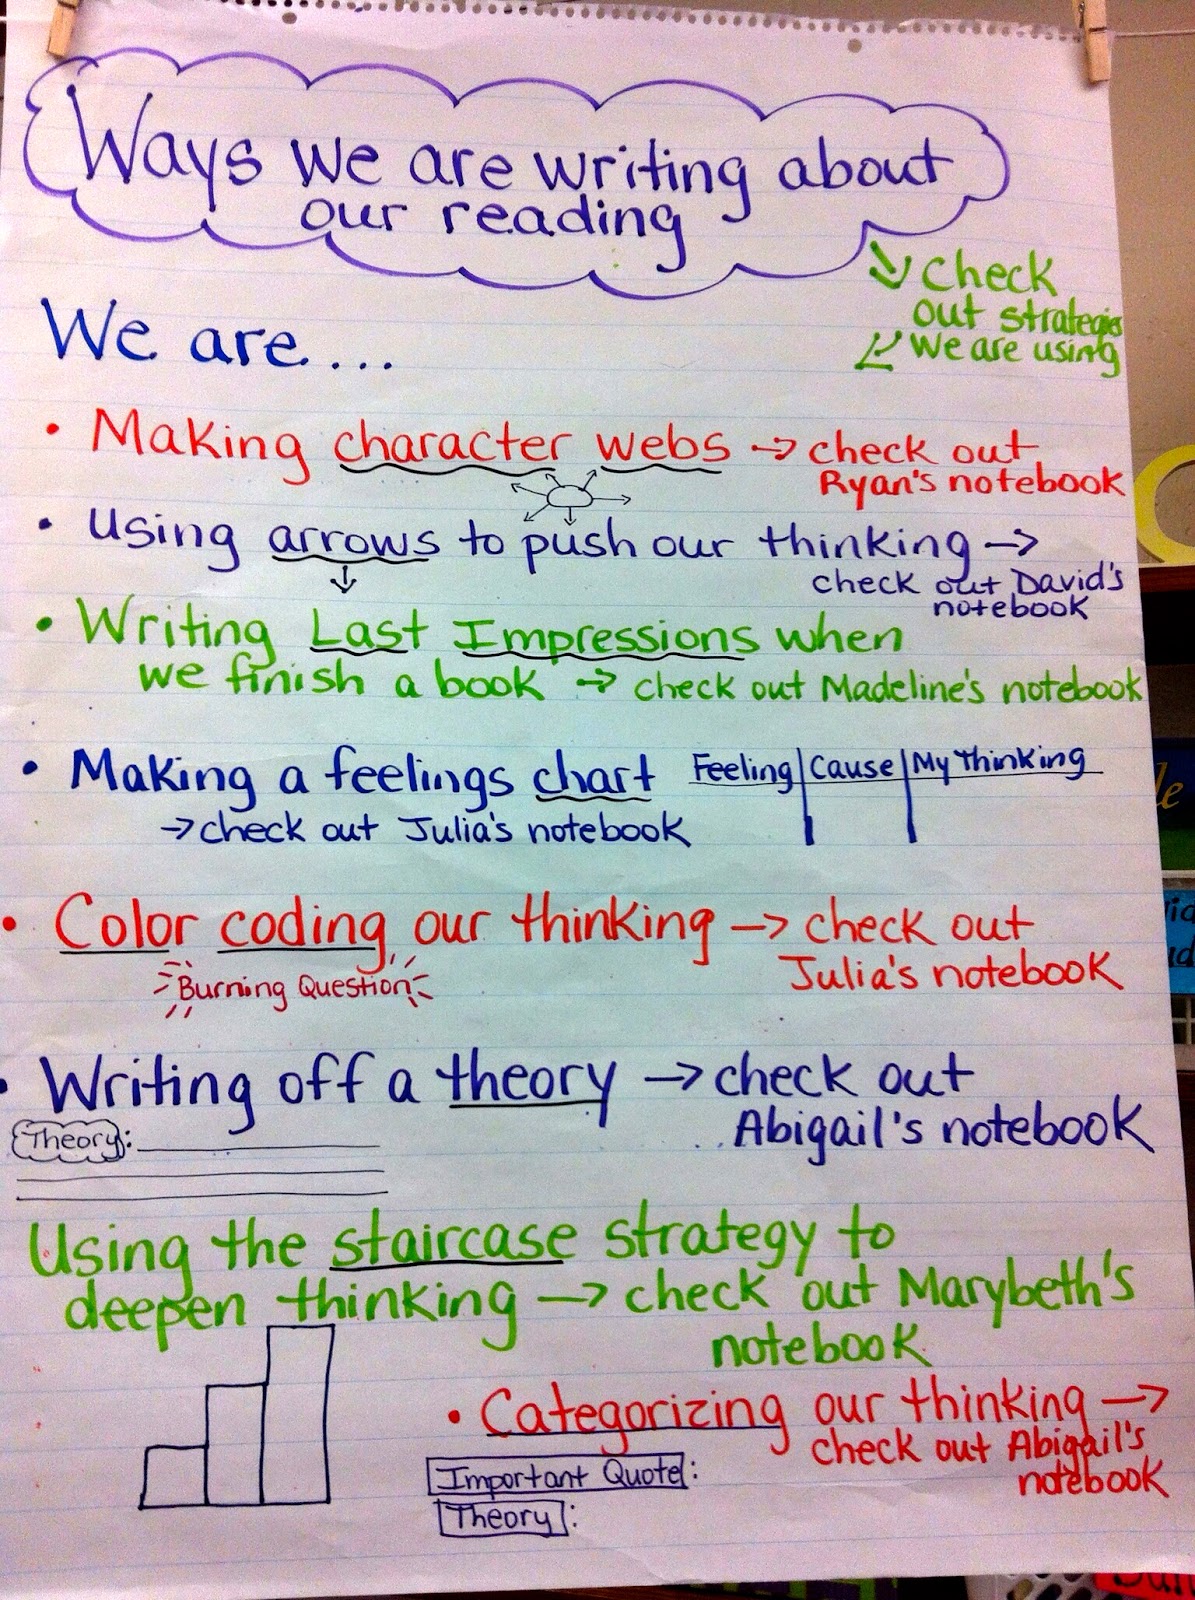 Ways we are writing about
our reading
Check
out strategies
we are using
We are....
• Making character webs → check out
Ryan's notebook
• Using arrows to push our thinking →
check out David's
notebook
• Writing Last Impressions when
we finish a book → check out Madeline's notebook
• Making a feelings chart
Feeling Cause My Thinking
→ check out Julia's notebook
• Color coding our thinking → check out
Julia's notebook
Burning Question
• Writing off a theory → check out
Abigail's notebook
Theory:
Using the staircase strategy to
deepen thinking → check out Marybeth's
notebook
• Categorizing our thinking →
check out Abigail's
notebook
Important Quote:
Theory: